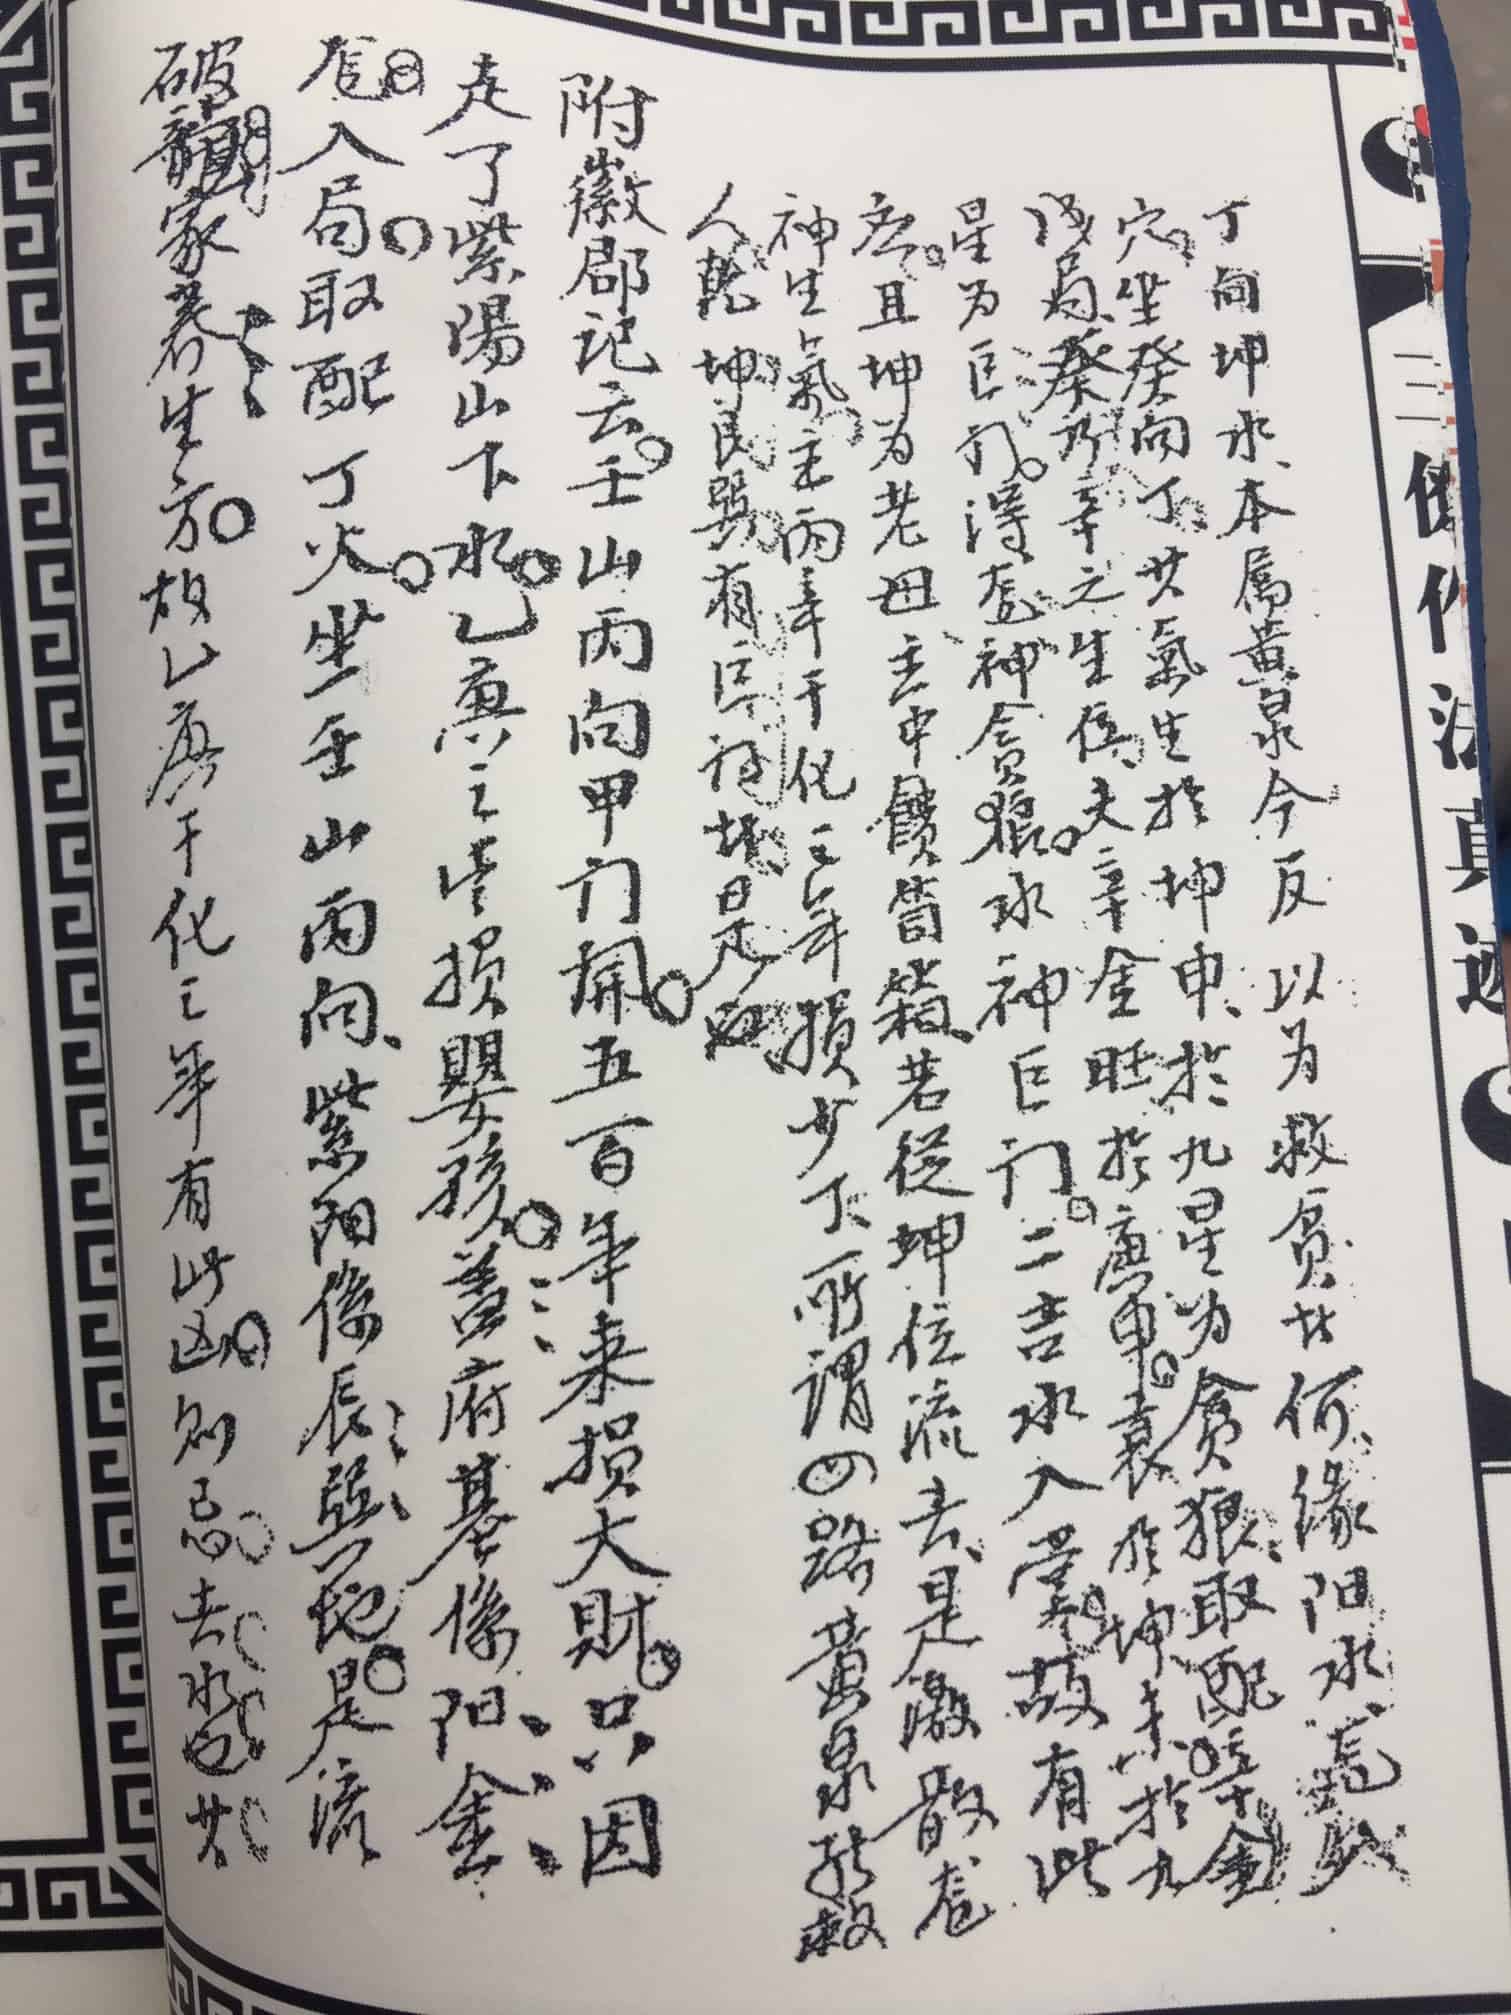 三僚作法真迹
丁向坤水、本屬黃泉今反以为救貧者何、緣阳水龙
穴、坐癸向丁、其氣生於坤申、於九星为貪狼、取配辛金
局、癸乃辛之生位、夫辛金旺於庚申。衰於坤未於九
星为巨门。得龙神貪狼。水神巨门。二吉水入堂。故有此
应。且坤为老母主中饋箕箱、若從坤位流去、是激散龙
神生氣、主丙辛干化之年損少丁、所謂四路黃泉能救
人乾坤艮巽有巨
附徽郡記云。壬山丙向甲门開。五百年来損大財。只因
走了紫陽山下水。乙庚之年損嬰孩。蓋府基係阳金
龙入局。取配丁火。坐壬山丙向、紫阳係辰巽地。是流
破龍家養生方。故乙庚干化之年有此凶。則忌去水